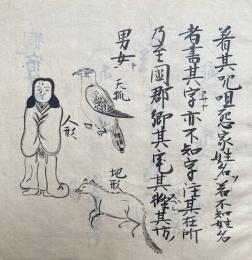 着其咒咀怨家姓名若不知姓名
者書其字亦不知字注其在所
乃至國郡郷其宅其條其坊
男女
天狐
人形
地形